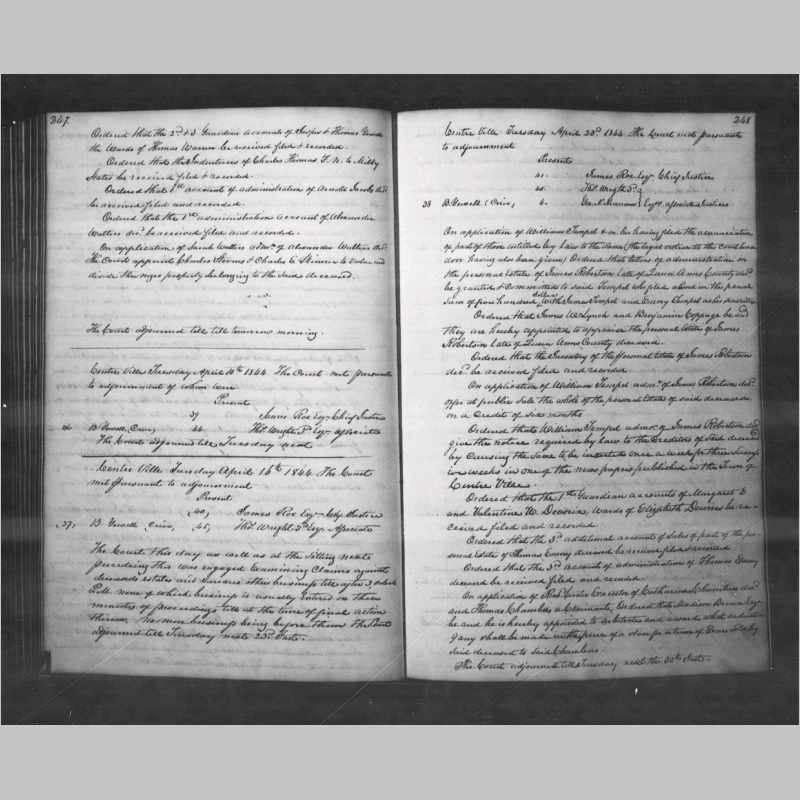 247.
Ordered that the 2d & 3 Guardian accounts of & Thomas
the Wards of Thomas Warren be received filed & recorded.
Ordered that the Indentures of Charles Thomas F. N. to Milby
be received filed & recorded.
Ordered that 1st account of administration of Arnold Jacobs decd
be received filed and recorded.
Ordered that the 1st administration account of Alexander
Walters decd be received filed and recorded.
On application of Sarah Walters admx of Alexander Walters decd
The Court appoint Charles Stevens & Charles C. Skinner to value and
divide the negro property belonging to the said deceased.
The Court adjourned till till tomorrow morning.
Centre Ville Tuesday April 10th 1844 The Court met pursuant
to adjournment of whom were
Present
39 James Roe Esqr Chief Justice
36 B. Gewell, Crier, 44 Thos Wright 3d Esqr associate
The Court adjourned till Tuesday next
Centre Ville Tuesday April 16th 1844 The Court
met pursuant to adjournment
Present
40, James Roe Esqr Chf Justice
37, B. Gewell Crier, 45, Thos Wright 3d Esqr Associate
The Court this day as well as at the sitting next
preceding this was engaged examining Claims against
deceased estates and various other business till after 3, oclock
P.M. none of which business is usually entered on these
minutes of proceedings till at the time of final action
thereon. No more business being before them the Court
adjourned till Tuesday next 23d Inst.
248
Centre Ville Tuesday April 23d 1844 The Court met pursuant
to adjournment
Present
41. James Roe Esqr Chief Justice
46. Thos Wright 3d
38 B. Gewell Crier, 6. Esqrs associate Justices
On application of William Tempel & on his having filed the renunciation
of part of those entitled by Law to the same (the legal notice at the court house
door having also been given) Ordered that letters of administration on
the personal Estate of James Robertson late of Queen Anns County decd
be granted & committed to said Tempel who filed a bond in the penal
sum of five hundred dollars with James Tempel and Tempel as his securities
Ordered that James W. Lynch and Benjamin Coppage be and
they are hereby appointed to appraise the personal Estate of James
Robertson late of Queen Anns County deceased.
Ordered that the Inventory of the personal Estate of James Robertson
decd be received filed and recorded.
On application of William Tempel admr of James Robertson decd
offer at public sale the whole of the personal Estate of said deceased
on a Credit of six months
Ordered that William Tempel admr of James Robertson decd
give the notice required by law to the Creditors of said deceased
by causing the same to be inserted once a week for three successive
weeks in one of the news papers published in the Town of
Centre Ville.
Ordered that the 1st Guardian accounts of Margaret E
and Valentine W. Downie Wards of Elizabeth Downes be re-
ceived filed and recorded.
Ordered that the 3d additional account of Sales of part of the per-
sonal Estate of Thomas Emory deceased be received filed & recorded
Ordered that the 3d Account of administration of Thomas Emory
deceased be received filed and recorded.
On application of Executor of Catharine Chambers decd
and Thomas Chambers a Claimant, Ordered that Madison Brown Esqr
be and he is hereby appointed to arbitrate and award what
if any shall be made
said deceased to said Chambers.
The Court adjourned till Tuesday next the 30th Inst.